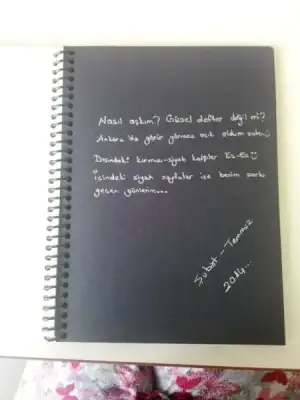 Nasıl aşkım? Güzel defter değil mi?
Ankara'da görür görmez aşık oldum zaten:)
Dışındaki kırmızı-siyah kalpler Es-Es:)
İçindeki siyah sayfalar ise benim sensiz
geçen günlerim...
Şubat - Temmuz
2014...